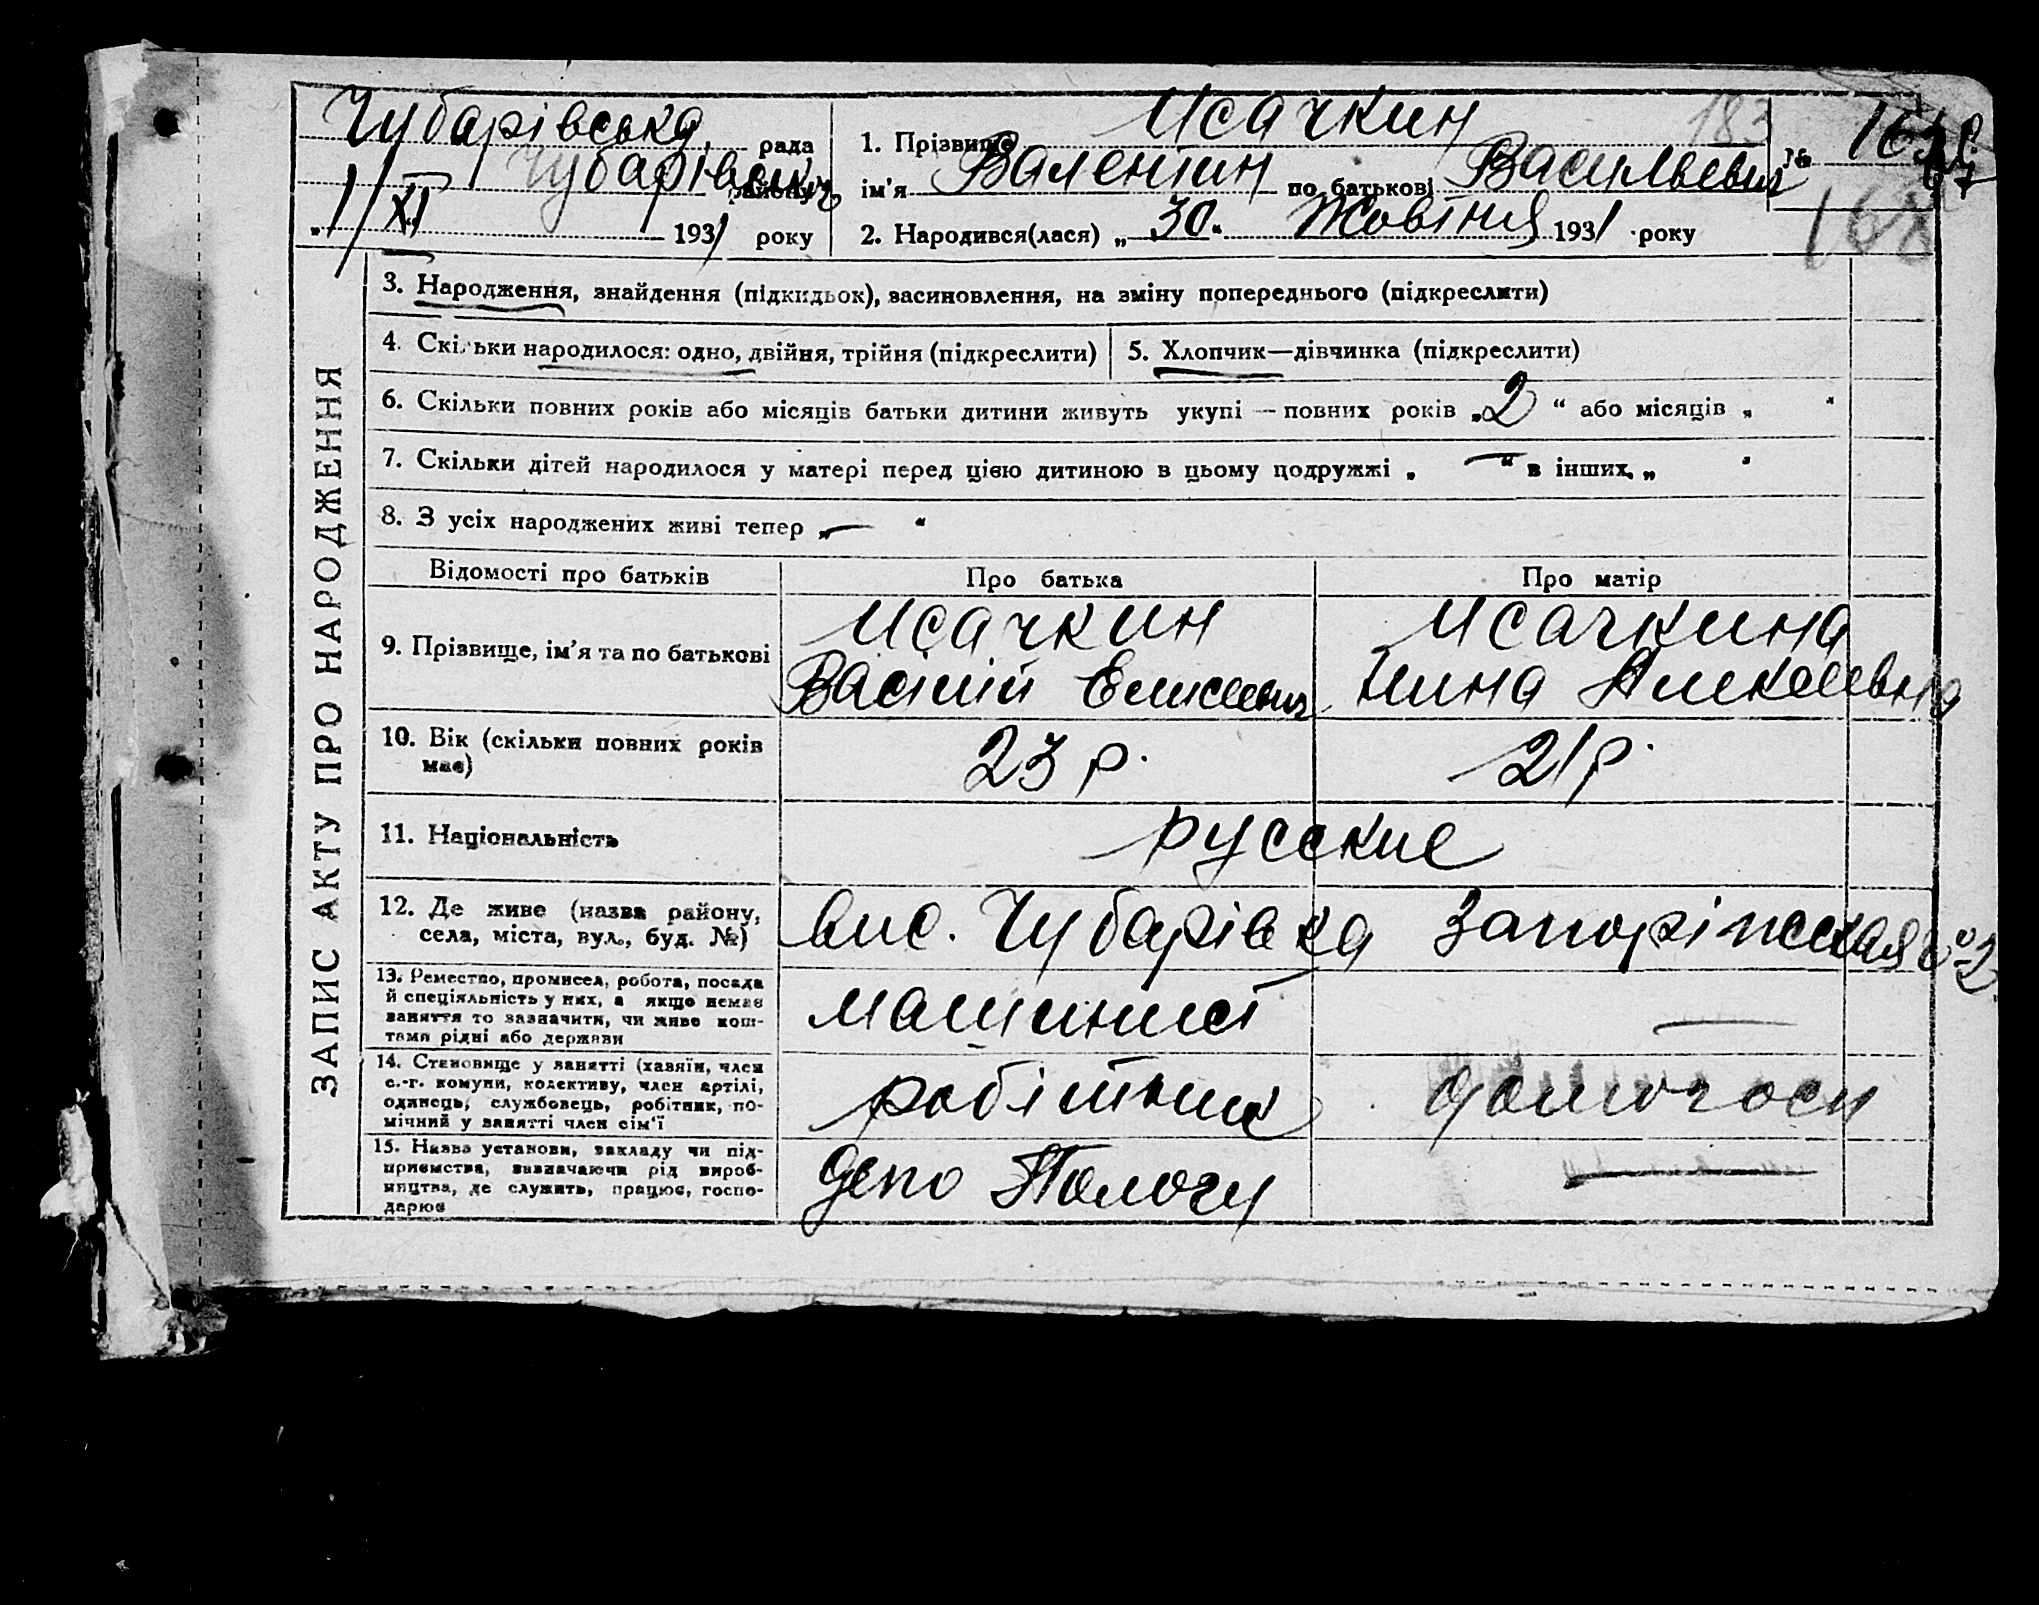 Чубарівська рада
Чубарівського району
„1/XI 1931 року
1. Прізвище Исачкин
ім’я Валентин по батькові Васильевич
2. Народився(лася) „30“ Жовтня 1931 року
183
№
168
ЗАПИС АКТУ ПРО НАРОДЖЕННЯ
3. Народження, знайдення (підкидьок), засиновлення, на зміну попереднього (підкреслити)
4. Скільки народилося: одно, двійня, трійня (підкреслити)
5. Хлопчик—дівчинка (підкреслити)
6. Скільки повних років або місяців батьки дитини живуть укупі — повних років „2“ або місяців „ “
7. Скільки дітей народилося у матері перед цією дитиною в цьому подружжі „—“ в інших „ “
8. З усіх народжених живі тепер „— “
Відомості про батьків Про батька Про матір
9. Прізвище, ім’я та по батькові
Исачкин
Васілій Елисеевич
Исачкина
Нина Алексеевна
10. Вік (скільки повних років
має)
23 р. 21 р.
11. Національність русские
12. Де живе (назва району,
села, міста, вул., буд. №)
вис. Чубарівка Запоріжская
13. Ремество, промисел, робота, посада
й спеціяльність у них, а якщо немає
заняття то зазначити, чи живе кош-
тами рідні або держави
машинист —
14. Становище у занятті (хазяїн, член
с.-г. комуни, колективу, член артілі,
одинець, службовець, робітник, по-
мічний у занятті член сім’ї
робітник домогосп
15. Назва установи, закладу чи під-
приємства, визначаючи рід вироб-
ництва, де служить, працює, госпо-
дарює
депо Пологи —